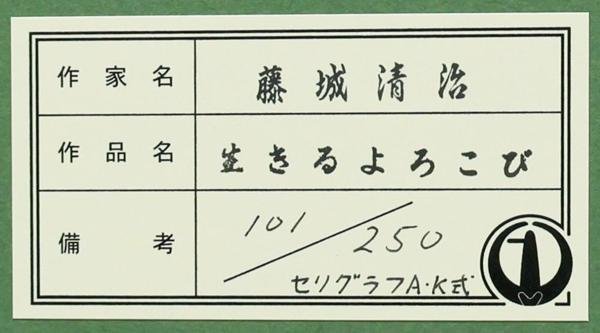 作家名 藤城清治
作品名 生きるよろこび
備考 101/250
セリグラフA・K式